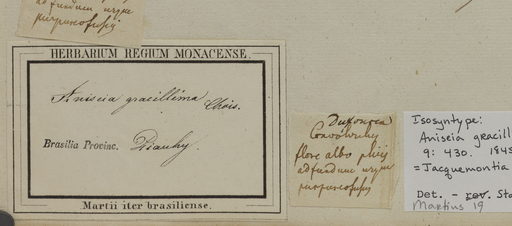 ad fundum usque
purpurascensis
HERBARIUM REGIUM MONACENSE.
Aniseia gracillima Chois.
Brasilia Provinc. Piauhy.
Martii iter brasiliense.
Convolvulus
flore albo
ad fundum usque
Isosyntype:
Aniseia gracill
9: 430. 1845
= Jacquemontia
Det. - rev. Sta
Martius 19